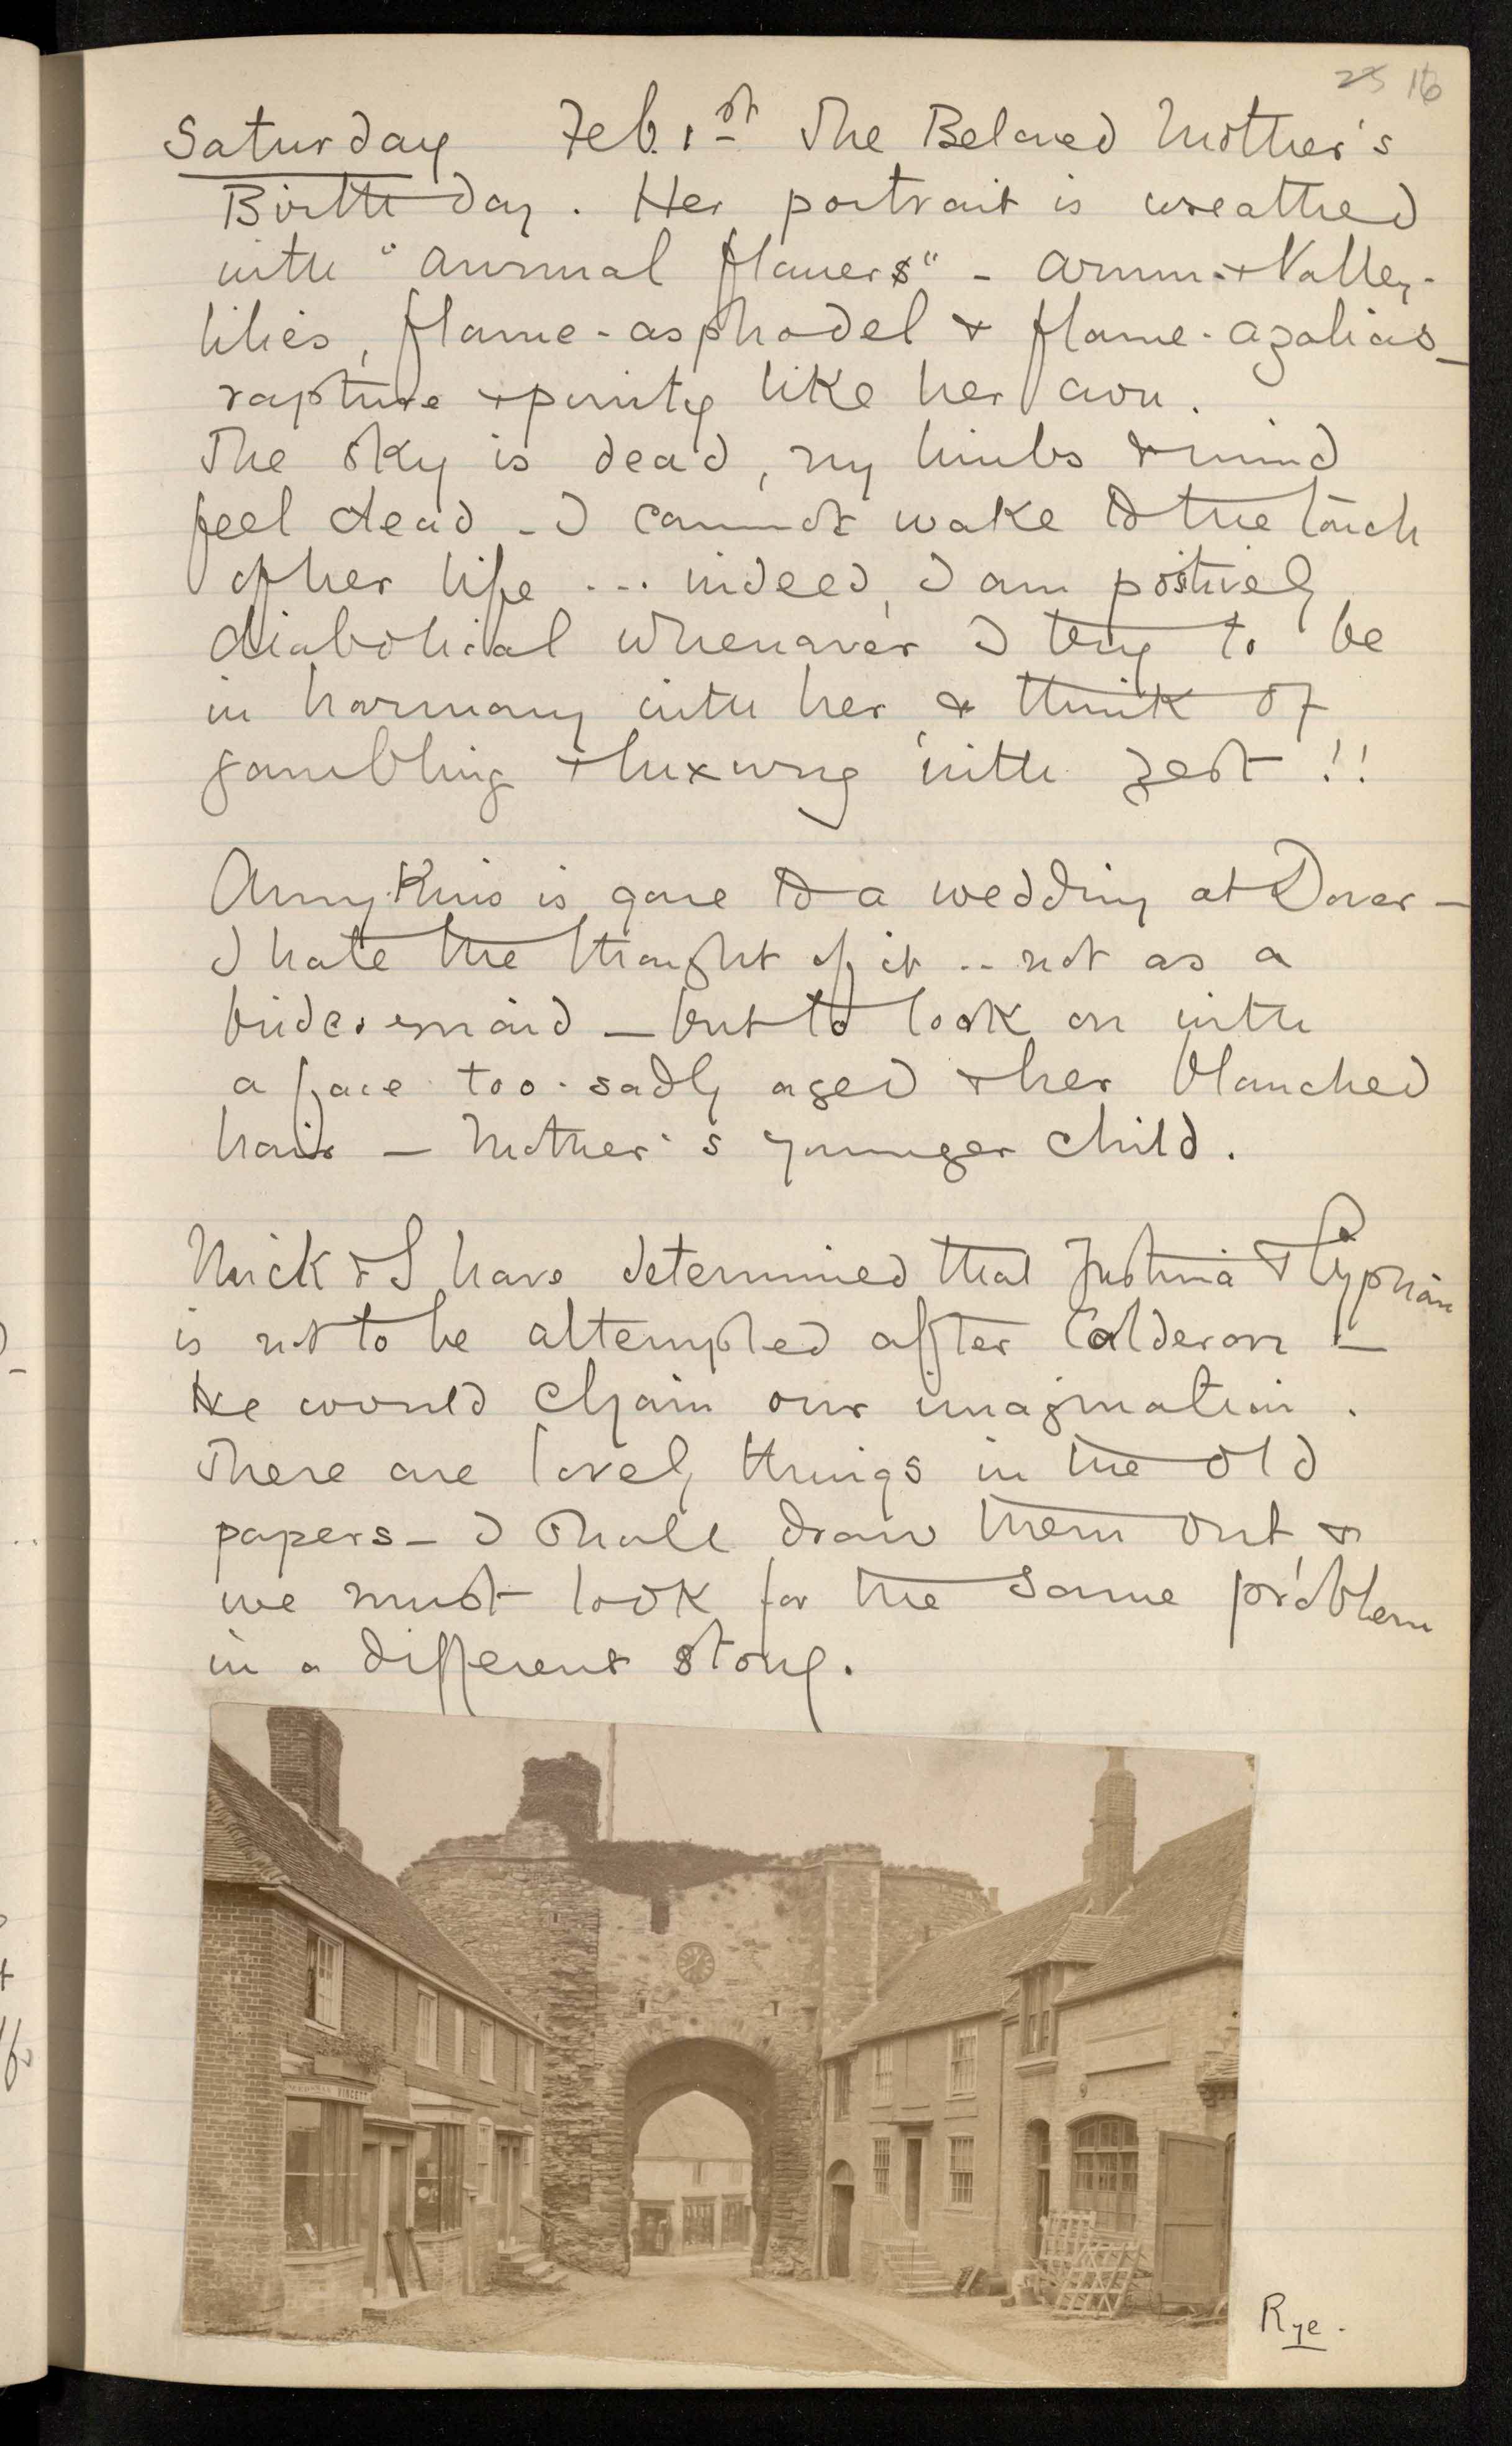 25 16
Saturday Feb. 1st The Beloved Mother's
Birth day. Her portrait is wreathed
with "annual flowers" - arum- & Valley-
lilies, flame-asphodel & flame-azalias_
rapture & purity like her own.
The sky is dead, my limbs & mind
feel dead - I cannot wake to the touch
of her life ... indeed, I am positively
diabolical whenever I try to be
in harmony with her, & think of
gambling & luxury with zest!!
Amykins is gone to a wedding at Dover -
I hate the thought of it .. not as a
bridesmaid - but to look on with
a face too-sadly aged & her blanched
hair - Mother's younger child.
Mick & I have determined that Justina & Cyprian
is not to be attempted after Calderon -
He would chain our imagination.
There are lovely things in the old
papers - I shall draw them out, &
we must look for the same problem
in a different story.
VINCETT
Rye.